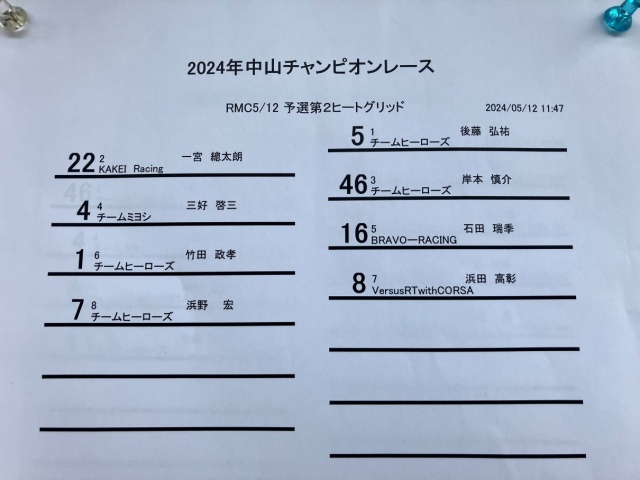 2024年中山チャンピオンレース
RMC5/12 予選第2ヒートグリッド
2024/05/12 11:47
5 1 後藤 弘祐
チームヒーローズ
22 2 一宮 總太朗
KAKEI Racing
46 3 岸本 慎介
チームヒーローズ
4 4 三好 啓三
チームミヨシ
16 5 石田 瑞季
BRAVOーRACING
1 6 竹田 政孝
チームヒーローズ
8 7 浜田 高彰
VersusRTwithCORSA
7 8 浜野 宏
チームヒーローズ